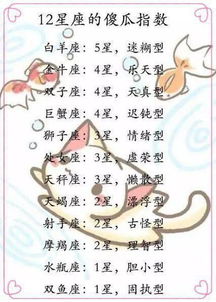 12星座的傻瓜指数
白羊座：5星，迷糊型
金牛座：4星，乐天型
双子座：4星，天真型
巨蟹座：4星，迟钝型
狮子座：3星，情绪型
处女座：3星，虚荣型
天秤座：3星，懒散型
天蝎座：2星，漂浮型
射手座：2星，古怪型
摩羯座：2星，理智型
水瓶座：1星，胆小型
双鱼座：1星，固执型